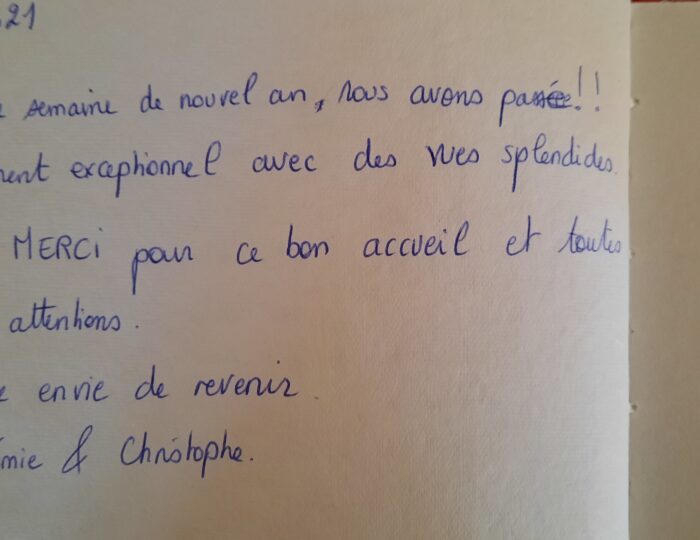 21
semaine de nouvel an, nous avons passée!!
ment exceptionnel avec des vues splendides.
MERCi pour ce bon accueil et toutes
attentions.
e envie de revenir.
mie & Christophe.